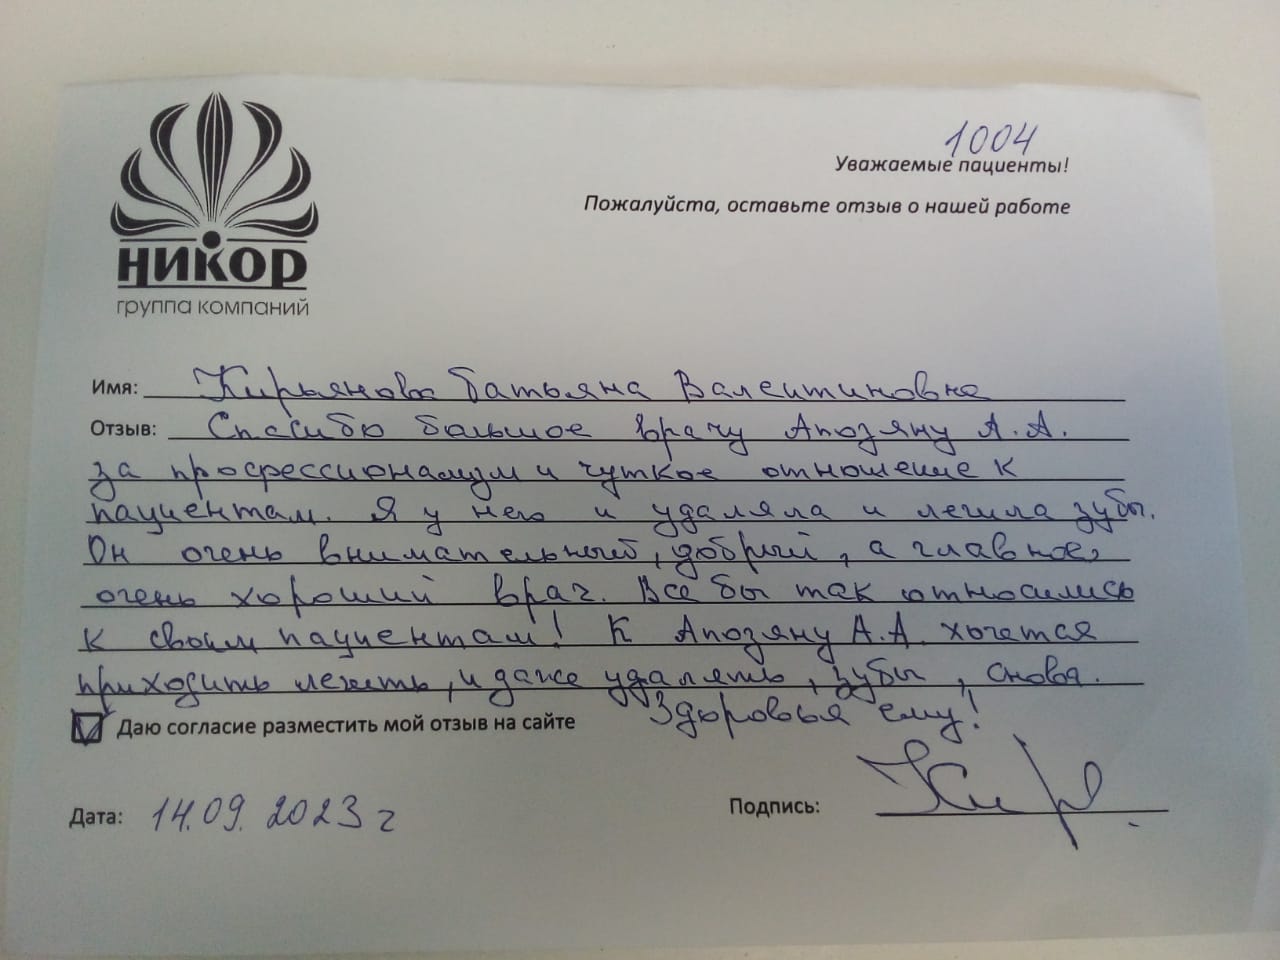 1004
Уважаемые пациенты!
Пожалуйста, оставьте отзыв о нашей работе
НИКОР
группа компаний
Имя: Кирьянова Татьяна Валентиновна
Отзыв: Спасибо большое врачу Апозяну А.А.
за профессионализм и чуткое отношение к
пациентам. Я у него и удаляла и лечила зубы.
Он очень внимательный, добрый, а главное,
очень хороший врач. Все бы так относились
к своим пациентам! К Апозяну А.А. хочется
приходить лечить, и даже удалять, зубы, снова.
Здоровья ему!
Даю согласие разместить мой отзыв на сайте
Дата: 14.09.2023 г
Подпись: